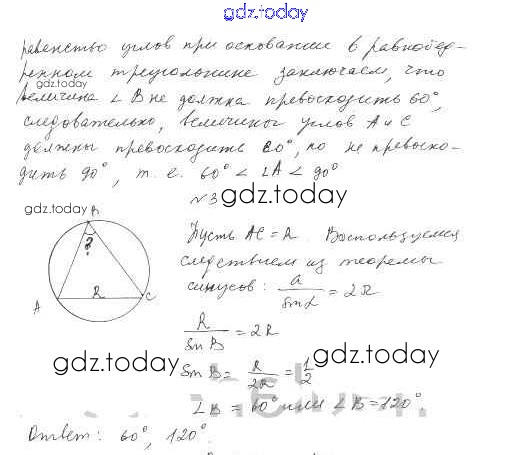 gdz.today
равенство углов при основании в равнобед-
ренном треугольнике заключаем, что
gdz.today
величина ∠B не должна превосходить 60°,
следовательно, величины углов A и C
должны превосходить 80°, но не превосхо-
дить 90°, т. е. 60° < ∠A < 90°
gdz.today
№3
B
?
A
R
C
Пусть AC = R. Воспользуемся
следствием из теоремы
синусов: a / sin α = 2R
R / sin B = 2R
gdz.today
gdz.today
sin B = R / 2R = 1/2
∠B = 60° или ∠B = 120°
Ответ: 60°, 120°.